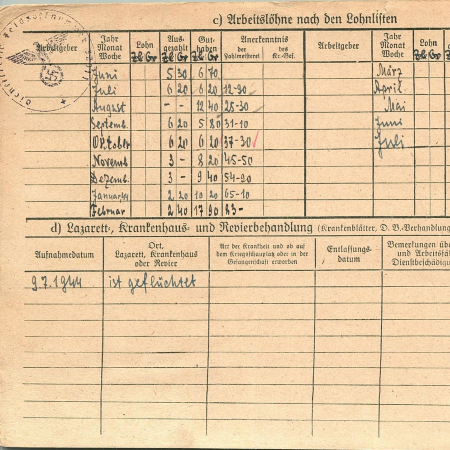 c) Arbeitslöhne nach den Lohnlisten
Arbeitgeber Jahr Monat Woche Lohn Aus- gezahlt Gut- haben Anerkenntnis des Zahlmeisters des Kr.-Gef. Arbeitgeber Jahr Monat Woche Lohn
Juni 5 30 6 70 März
Juli 6 20 6 20 12-90 April
August - - 12 40 25-30 Mai
Septemb. 6 20 5 80 31-10 Juni
Oktober 6 20 6 20 37-30 Juli
Novemb 3 - 8 20 45-50
Dezemb. 3 - 9 40 54-90
Januar44 2 20 10 20 65-10
Februar 2 40 17 90 83-
d) Lazarett-, Krankenhaus- und Revierbehandlung (Krankenblätter, D. B.-Verhandlung
Aufnahmedatum Ort, Lazarett, Krankenhaus oder Revier Art der Krankheit und ob auf dem Kriegsschauplatz oder in der Gefangenschaft erworben Entlassungs- datum Bemerkungen üb und Arbeitsfä Dienstbeschädig
9.7.1944 ist geflüchtet